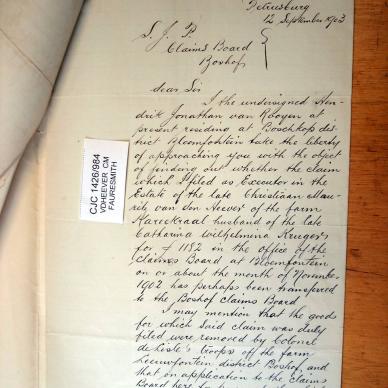 Petrusburg
12 September 1903
S. J. P.
Claims Board
Boshof
Dear Sir
I the undersigned Hen-
drik Jonathan van Rooyen at
present residing at Boschkop dis-
trict Bloemfontein take the liberty
of approaching you with the object
of finding out whether the claim
which I filed as Executor in the
Estate of the late Christiaan Mau-
rits van der Hoever of the farm
husband of the late
Catharina Wilhelmina Krugers
for £ 1152 in the office of the
Claims Board at Bloemfontein
on or about the month of November
1902 has perhaps been transferred
to the Boshof Claims Board.
I may mention that the goods
for which said claim was duly
filed were removed by Colonel
de Lisle's Troops off the farm
Leeuwfontein district Boshof, and
that on application to the Claims
Board here
CJC 1426/984
VOHEEVER CM
FAURESMITH